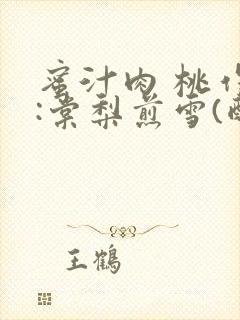 蜜汁肉桃作
:棠梨煎雪(
王鹤